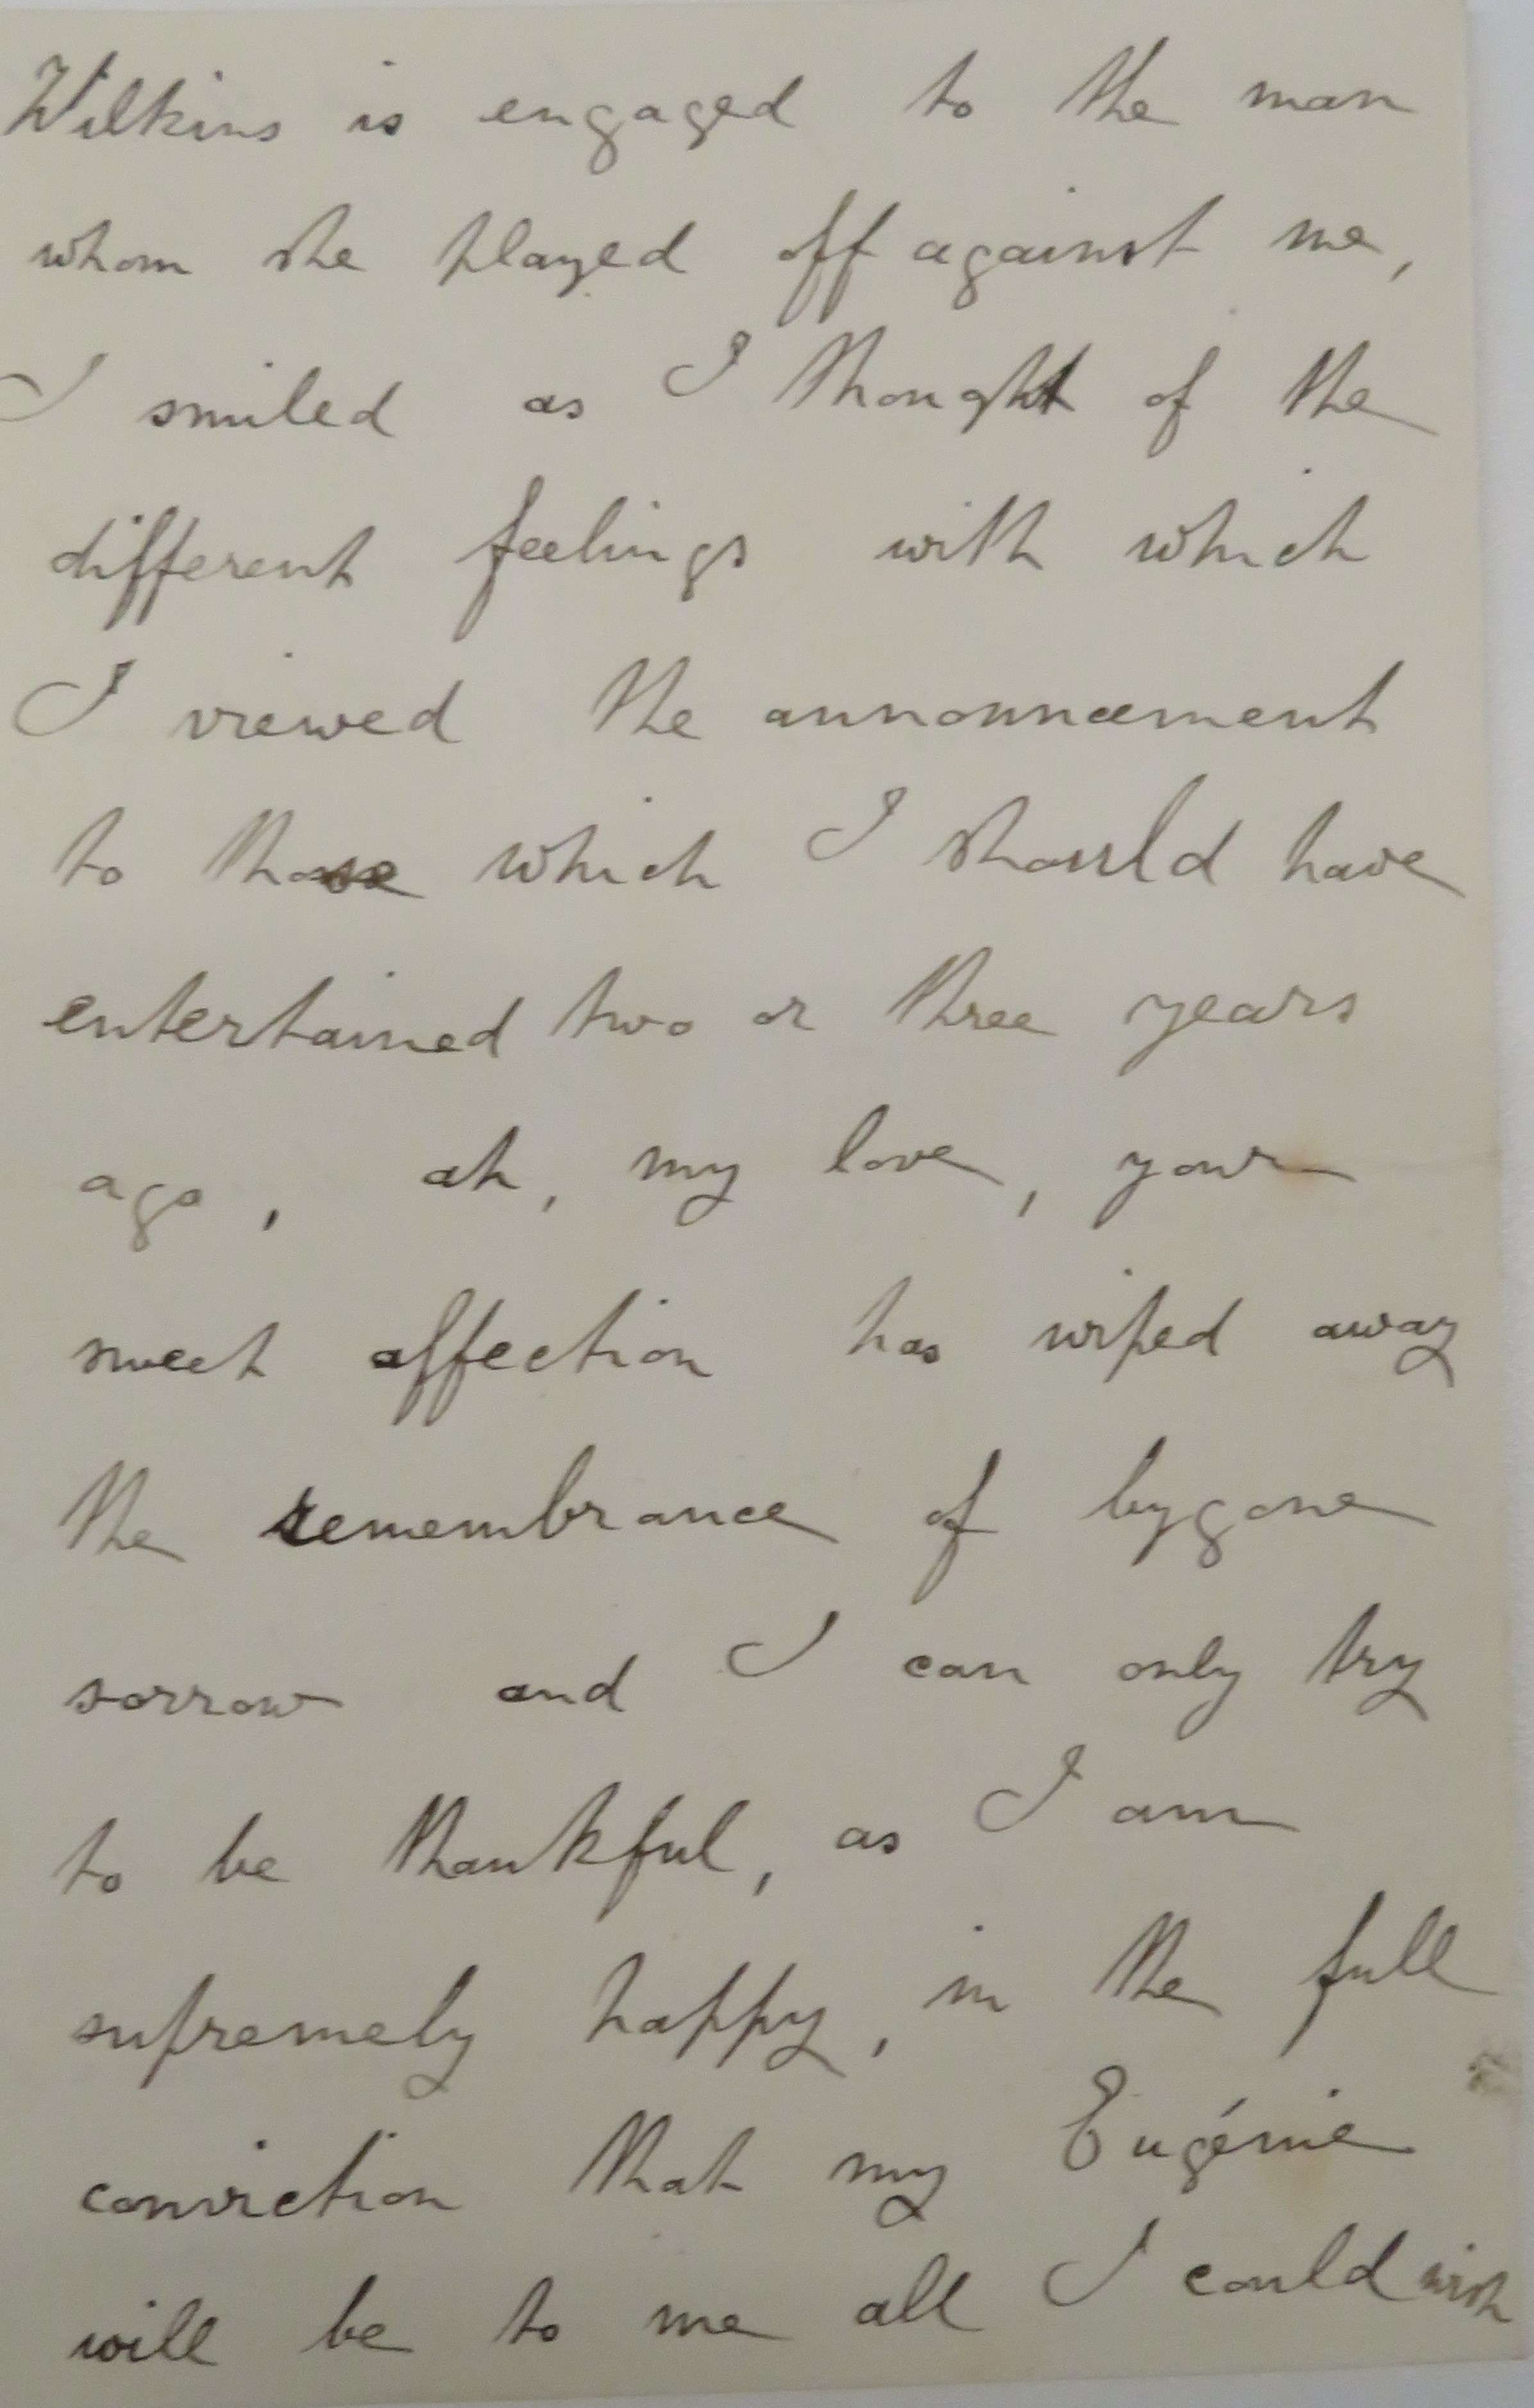 Wilkins is engaged to the man
whom she played off against me,
I smiled as I thought of the
different feelings with which
I viewed the announcement
to those which I should have
entertained two or three years
ago, ah, my love, your
sweet affection has wiped away
the remembrance of bygone
sorrow and I can only try
to be thankful, as I am
supremely happy, in the full
conviction that my Eugénie
will be to me all I could wish